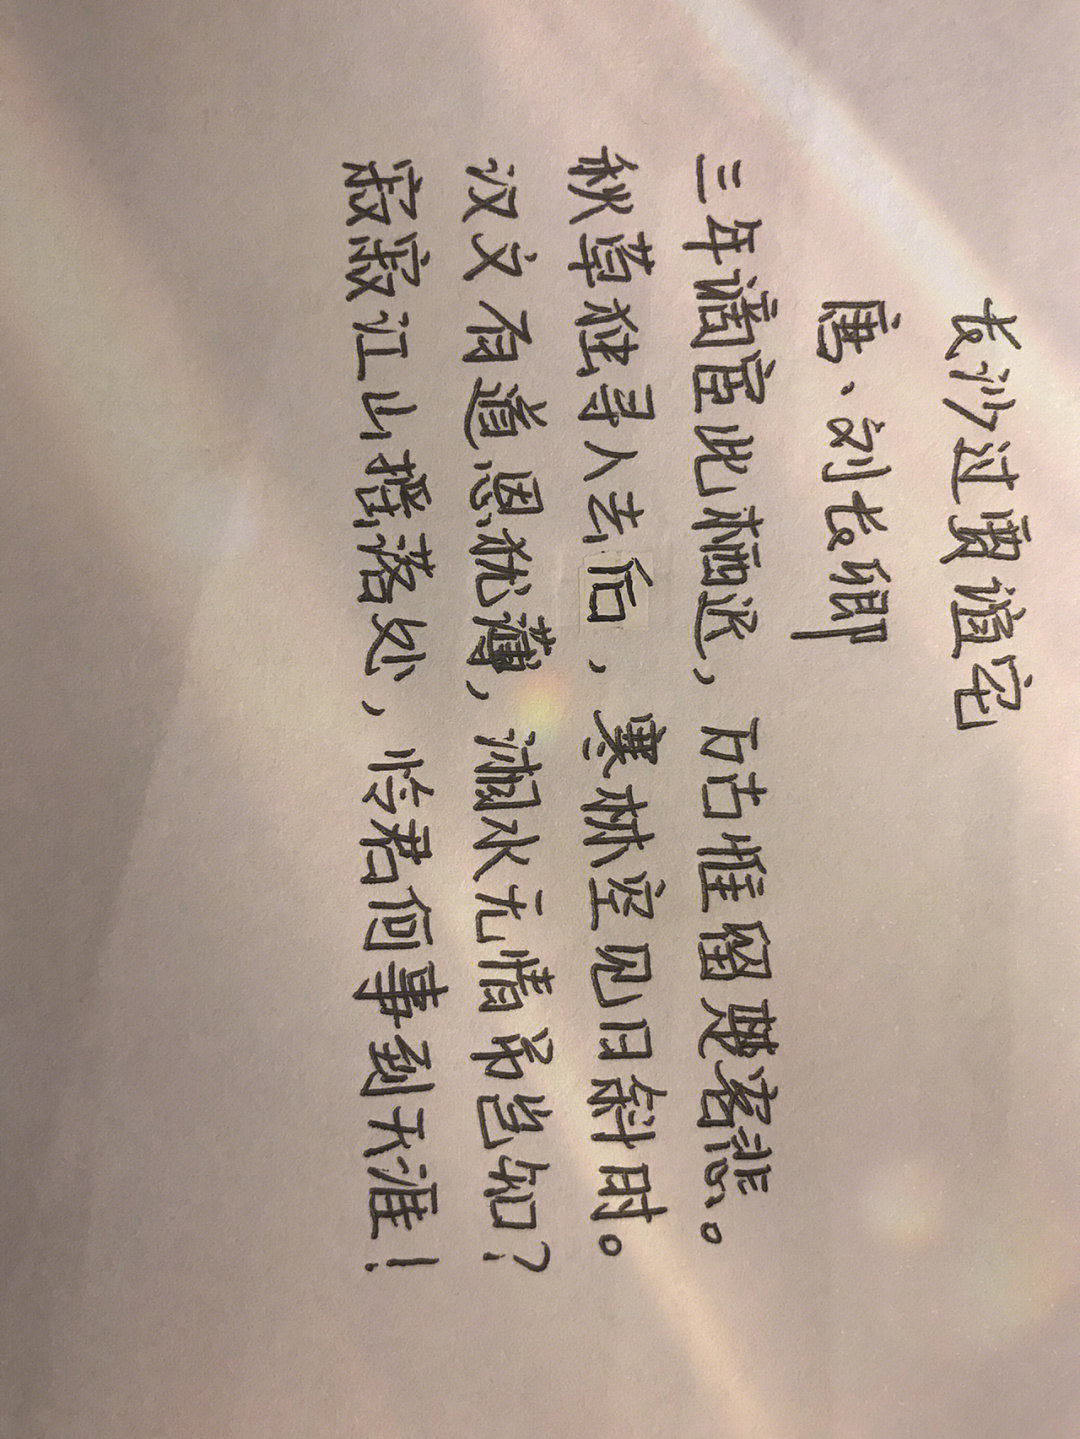 长沙过贾谊宅
唐、刘长卿
三年谪宦此栖迟，万古惟留楚客悲。
秋草独寻人去后，寒林空见日斜时。
汉文有道恩犹薄，湘水无情吊岂知？
寂寂江山摇落处，怜君何事到天涯！